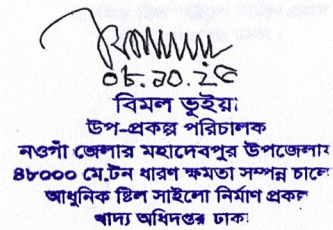 ০৮.১০.২৫
বিমল ভুইয়া
উপ-প্রকল্প পরিচালক
নওগাঁ জেলার মহাদেবপুর উপজেলায়
৪৮০০০ মে.টন ধারণ ক্ষমতা সম্পন্ন চালে
আধুনিক ষ্টিল সাইলো নির্মাণ প্রকল্প
খাদ্য অধিদপ্তর ঢাকা